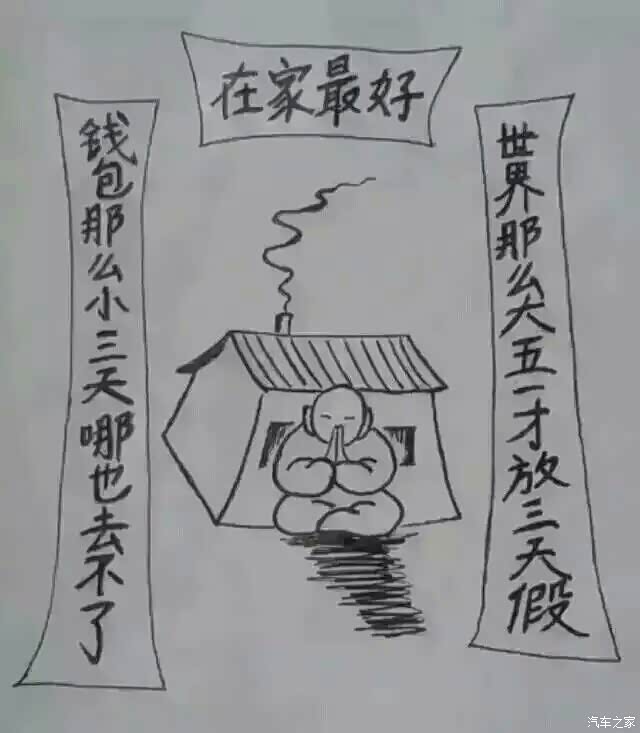 在家最好
世界那么大五一才放三天假
钱包那么小三天哪也去不了
汽车之家